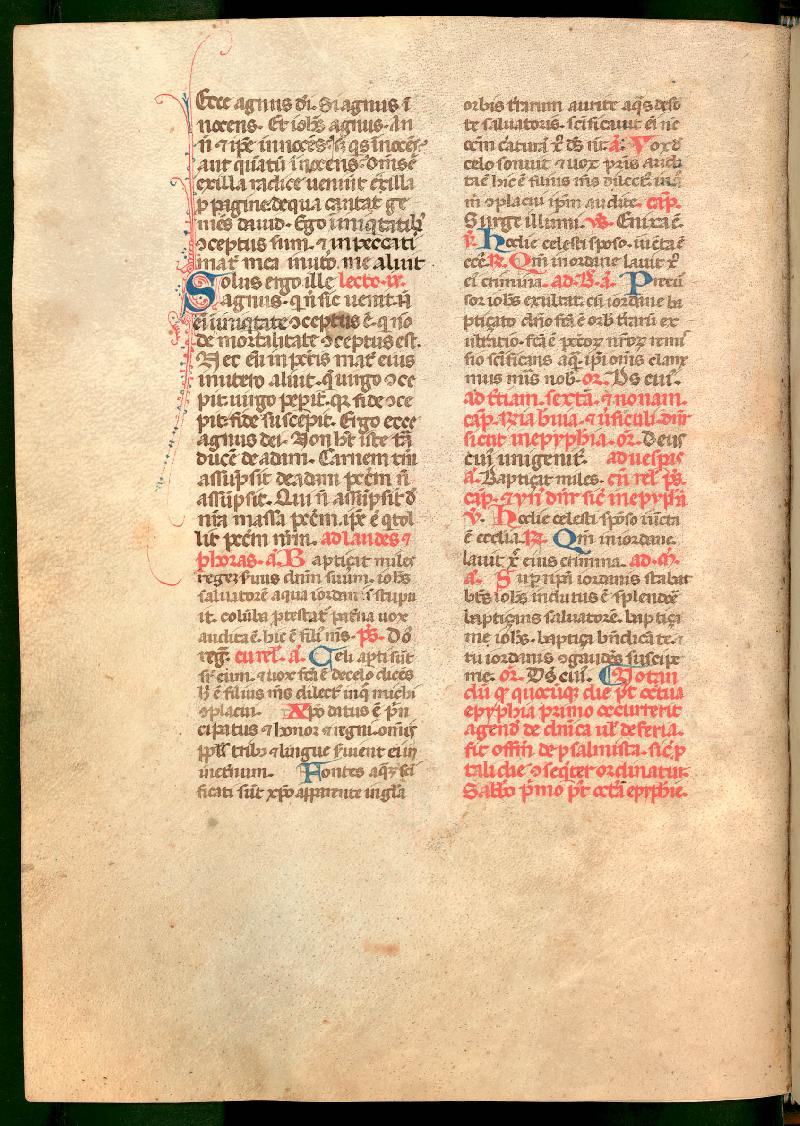 Ecce agnus di. Si agnus i
nocens. Et iohs agnus. An
n̄ ⁊ ip̄e innocēs. s; q̄s inocēs.
aut quātū inocens. Om̄s ē
exilla radice veniūt exilla
ꝓpagine de qua cantat ge
mēs david. Ego in iniquitatib;
ↄceptus sum. ⁊ in peccati
mat̄ mea in utō me aluit.
Solus ergo ille lectō. ix.
agnus. q̄ n̄ sic venit. n̄
ei iniqtate ↄceptus ē. q̄ nō
de mortalitate ↄceptus est.
Nec eū in pctīs mat̄ eius
in utero aluit. q̄ virgo ↄce
pit virgo pepit. qr fide ↄce
pit. fide suscepit. Ergo ecce
agnus dei. Non ht iste t̄
ducē de adam. Carnem tm̄
assūpsit de adam pctm̄ n̄
assūpsit. Qui n̄ assūpsit d̄
nr̄a massa pctm̄. ip̄e ē q̄ tol
lit pctm̄ nr̄m. ad laudes ⁊
p horas. a. Baptiçat miles
regez suus dnm̄ suum. iohs
salvatorē aqua iordanis stupu
it. colūba ꝓtestat̄ patna vox
audita ē. hic ē fili' m̄s. ps. Dō
reg̃. cū rel. a. Celi apti sūt
sr eum. ⁊ vox fcā ē de celo dicēs
h̄ ē filius m̄s dilect' in q̄ michi
ↄplacui. Xp̄o datus ē p̄n
cipatus ⁊ honor ⁊ regnū. om̄is
pp̄ls trib; ⁊ lingue s̄vient ei in
inet̄num. Fontes aqz sc̄i
ficati sūt xp̄o apparente in glā
orbis t̄rarum aurite aq̄s de fō
te salvatoris. sc̄ificavit ei nc̄
oc̄m c̄aturā xp̄ ds nr̄. a. Vox d̄
celo sonuit ⁊ vox pr̄is audi
ta ē hic ē filius m̄s dilect' in q̄
m̄ ↄplacui ip̄m audite. cap.
Surge illumi. vs. Enixa ē.
v. Hodie celesti sposo iūcta ē
ecc̄. R. Qm̄ in iordane lavit xp̄
ei crimina. ad. B. a. Precu
sor iohs exultat. cū iordane ba
ptiçato dn̄o fcā ē orb' t̄rarū ex
ultatio. fcā ē pctoꝝ nr̄oꝝ remi
sio sc̄ificans aq̄s. ip̄i om̄s clame
mus mis nob'. or. Ds cui'.
ad t̄tiam. sextā. ⁊ nonam.
cap. R̄ria bīnia. ⁊ v̄siculi. dnr̄
sicut in epyphia. or. Deus
cui' unigenit'. ad vesp̄is
a. Baptiçat miles. cū rel. ps.
cap. ⁊ yn' dnr̄ sic̄ in epyphā
v. Hodie celesti sp̄oso iūcta
ē ecclīa. R. Qm̄ in iordane.
lavit xp̄ eius crimina. ad. M.
a. Sup ripā iordanis stabat
bt̄s iohs indutus ē splendoē
baptiçans salvatorē. baptiça
me iohs. baptiça bn̄dica te. ⁊
tu iordanis ↄgaudēs suscipe
me. or. Ds cui'. Notan
dū q̄ quocūq; die p̄t octava
epyphia primo occurrerit
agend' de dn̄ica vl de feria.
fit offm̄ de psalmista. sic̄ p
tali die ↄseq̄ter ordinatur.
Sabbō p̄mo p̄t octā epyphie.